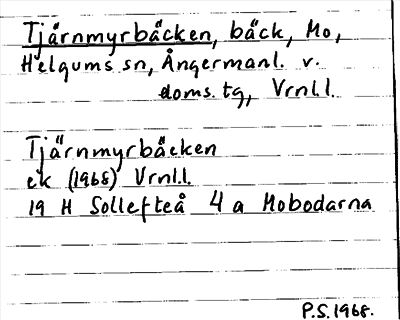 Tjärnmyrbäcken, bäck, Mo,
Helgums sn, Ångermanl. v.
doms. tg, Vrnl.l.
Tjärnmyrbäcken
ek (1968) Vrnl.l.
19 H Sollefteå 4 a Mobodarna
P.S. 1968.